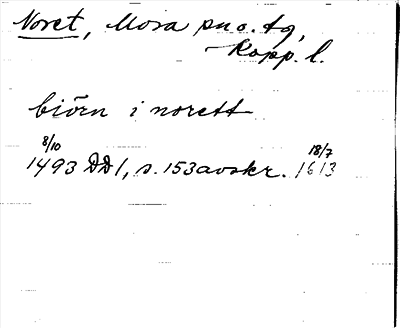 Noret, Mora sn o. tg,
Kopp. l.
biörn i norett
8/10 18/7
1493 DD 1, s. 153 avskr. 1613